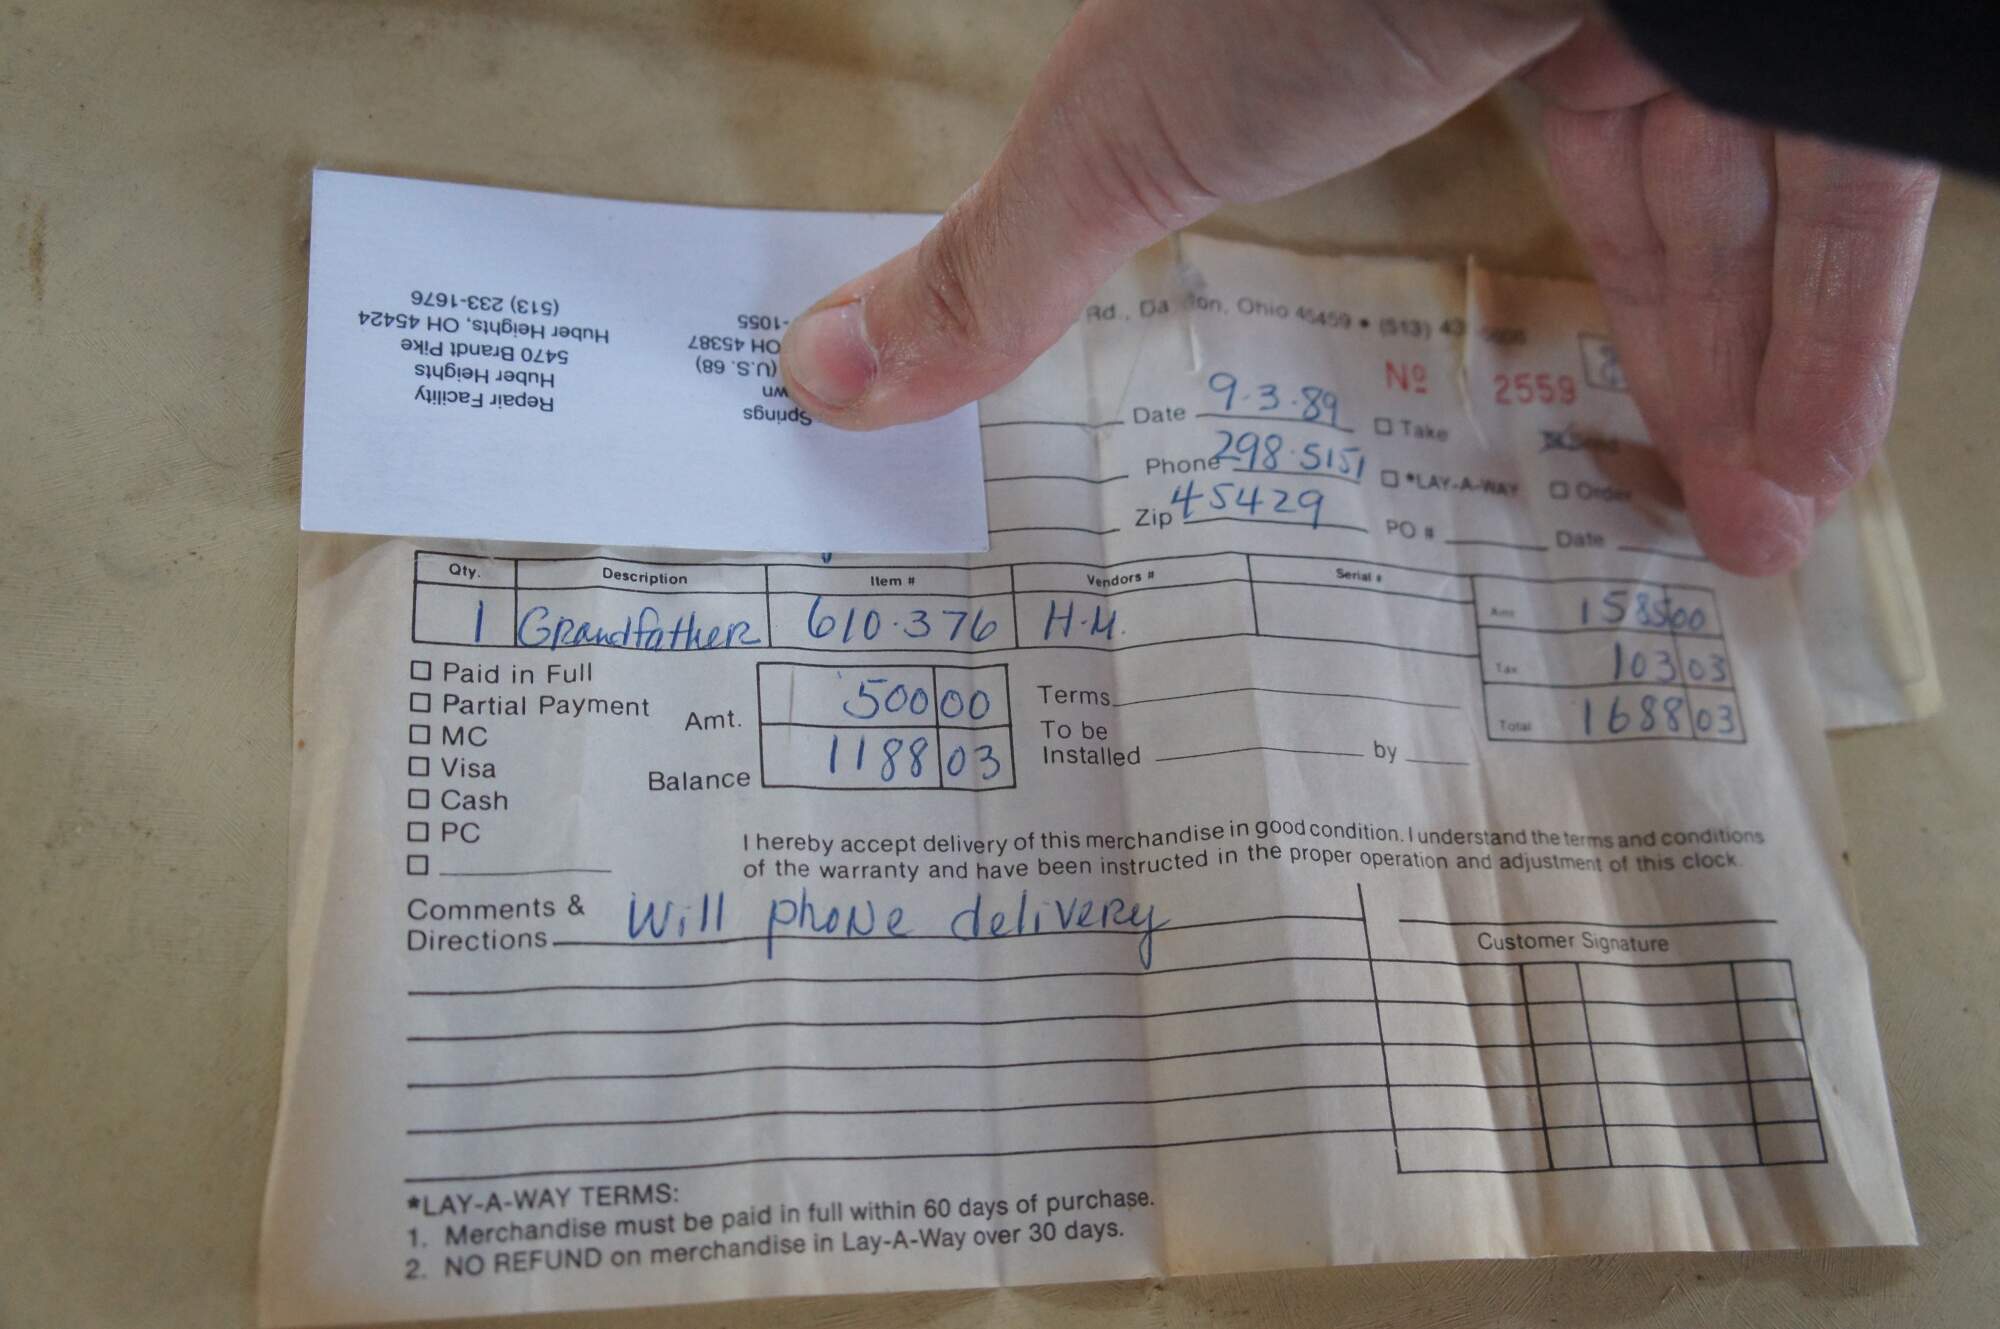 Repair Facility
Huber Heights
5470 Brandt Pike
Huber Heights, OH 45424
(513) 233-1676
Springs
wn
(U.S. 68)
OH 45387
-1055
Rd., Da ton, Ohio 45459 • (513) 43
Nº 2559
Date 9-3-89 Take
Phone 298-5151 *LAY-A-WAY Order
Zip 45429 PO # Date
Qty. Description Item # Vendors # Serial #
1 Grandfather 610-376 H-M.
Amt 1585 00
Tax 103 03
Total 1688 03
Paid in Full
Partial Payment
MC
Visa
Cash
PC
Amt. 500 00
Balance 1188 03
Terms
To be
Installed by
I hereby accept delivery of this merchandise in good condition. I understand the terms and conditions
of the warranty and have been instructed in the proper operation and adjustment of this clock.
Comments &
Directions Will phone delivery
Customer Signature
*LAY-A-WAY TERMS:
1. Merchandise must be paid in full within 60 days of purchase.
2. NO REFUND on merchandise in Lay-A-Way over 30 days.